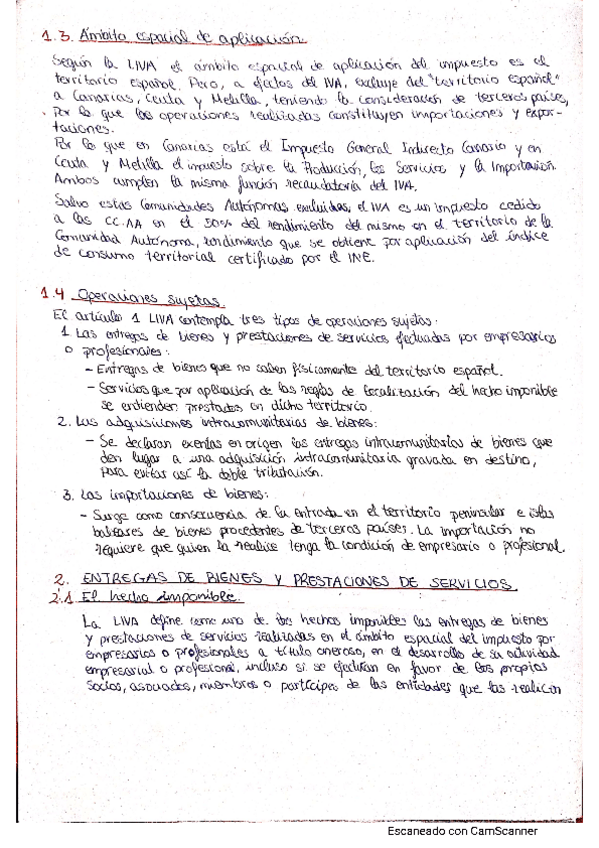 1.3. Ámbito espacial de aplicación
Según la LIVA el ámbito espacial de aplicación del impuesto es el
territorio español. Pero, a efectos del IVA, excluye del "territorio español"
a Canarias, Ceuta y Melilla, teniendo la consideración de terceros países,
Por lo que las operaciones realizadas constituyen importaciones y expor-
taciones.
Por lo que en Canarias está el Impuesto General Indirecto Canario y en
Ceuta y Melilla el impuesto sobre la Producción, los Servicios y la Importación.
Ambos cumplen la misma función recaudatoria del IVA.
Salvo estas Comunidades Autónomas excluidas, el IVA es un impuesto cedido
a las CC.AA en el 50% del rendimiento del mismo en el territorio de la
Comunidad Autónoma, rendimiento que se obtiene por aplicación del índice
de consumo territorial certificado por el INE.
1.4 Operaciones sujetas
El artículo 1 LIVA contempla tres tipos de operaciones sujetas:
1. Las entregas de bienes y prestaciones de servicios efectuadas por empresarios
o profesionales:
- Entregas de bienes que no salen físicamente del territorio español.
- Servicios que por aplicación de las reglas de localización del hecho imponible
se entienden prestados en dicho territorio.
2. Las adquisiciones intracomunitarias de bienes:
- Se declaran exentas en origen las entregas intracomunitarias de bienes que
den lugar a una adquisición intracomunitaria gravada en destino,
para evitar así la doble tributación.
3. Las importaciones de bienes:
- Surge como consecuencia de la entrada en el territorio peninsular e islas
baleares de bienes procedentes de terceros países. La importación no
requiere que quien la realice tenga la condición de empresario o profesional.
2. ENTREGAS DE BIENES Y PRESTACIONES DE SERVICIOS
2.1 El hecho imponible
La LIVA define como uno de los hechos imponibles las entregas de bienes
y prestaciones de servicios realizadas en el ámbito espacial del impuesto por
empresarios o profesionales a título oneroso, en el desarrollo de su actividad
empresarial o profesional, incluso si se efectúan en favor de los propios
socios, asociados, miembros o partícipes de las entidades que las realicen
Escaneado con CamScanner